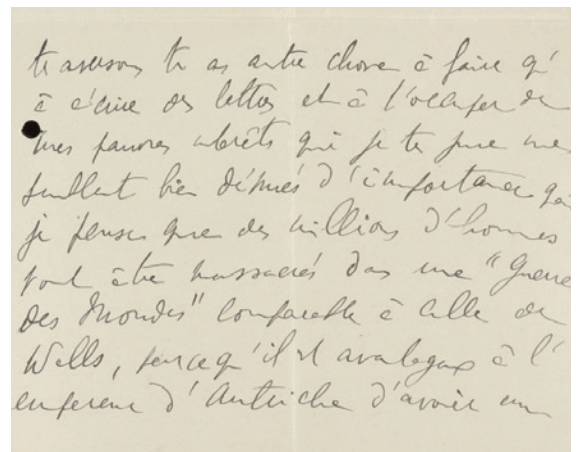 traversons tu as autre chose à faire qu'
à écrire des lettres et à t'occuper de
mes pauvres intérêts qui je te jure me
semblent bien dénués d'importance qd
je pense que des millions d'hommes
vont être massacrés dans une "Guerre
des Mondes" comparable à celle de
Wells, parce qu'il est avantageux à l'
empereur d'Autriche d'avoir un